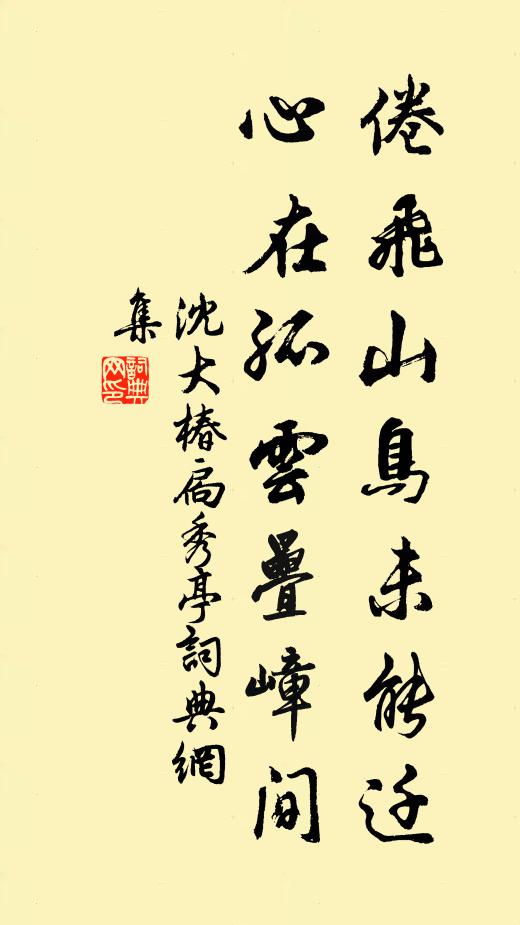 倦飛山鳥未能還
心在孤雲疊嶂间
沈大椿扃秀亭詞典網
集
詞典
网印